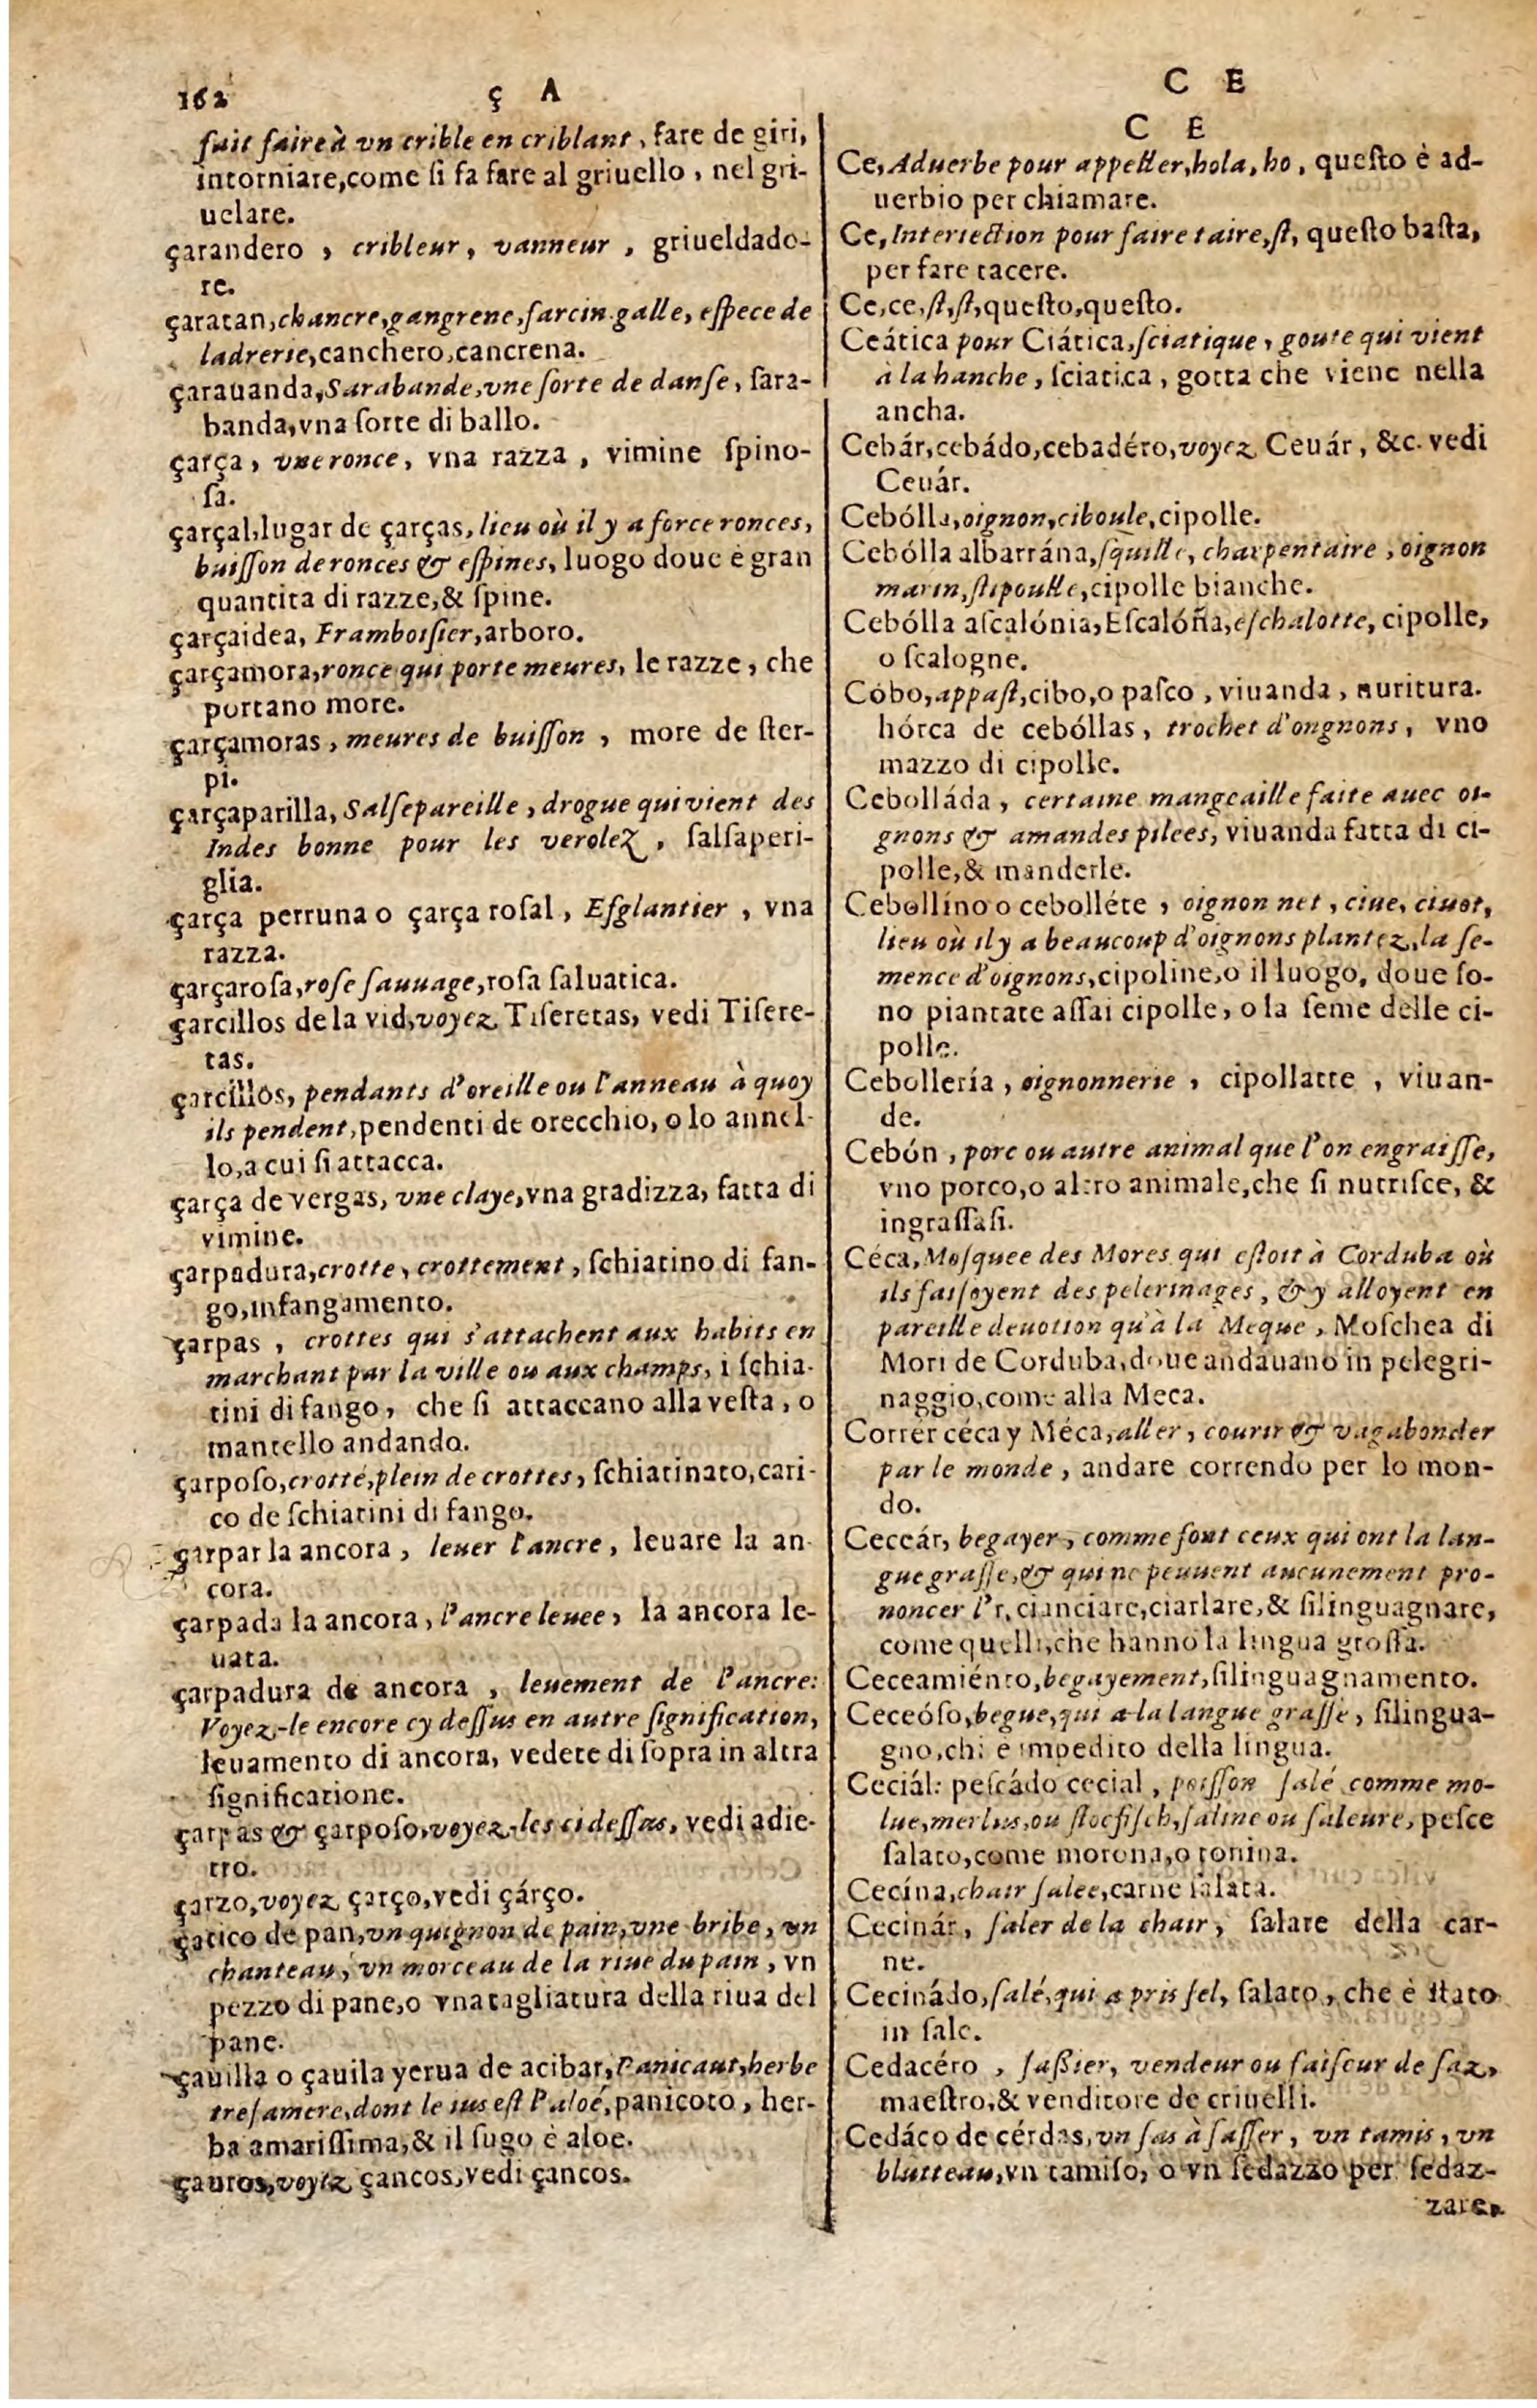 162
ç A
ſait faire à vn crible en criblant, fare de giri,
intorniare, come ſi fa fare al griuello, nel gri-
uelare.
çarandero, cribleur, vanneur, griueldado-
re.
çaratan, chancre, gangrene, farcin. galle, eſpece de
ladrerie, canchero, cancrena.
çarauanda, Sarabande, vne ſorte de danſe, ſara-
banda, vna ſorte di ballo.
çarça, vne ronce, vna razza, vimine ſpino-
ſa.
çarçal, lugar de çarças, lieu où il y a force ronces,
buiſſon de ronces & eſpines, luogo doue è gran
quantita di razze, & ſpine.
çarçaidea, Framboiſier, arboro.
çarçamora, ronce qui porte meures, le razze, che
portano more.
çarçamoras, meures de buiſſon, more de ſter-
pi.
çarçaparilla, Salſepareille, drogue qui vient des
Indes bonne pour les verolez, ſalſaperi-
glia.
çarça perruna o çarça roſal, Eſglantier, vna
razza.
çarçaroſa, roſe ſauuage, roſa ſaluatica.
çarcillos de la vid, voyez Tiſeretas, vedi Tiſere-
tas.
çarcillos, pendants d'oreille ou l'anneau à quoy
ils pendent, pendenti de orecchio, o lo annel-
lo, a cui ſi attacca.
çarça de vergas, vne claye, vna gradizza, fatta di
vimine.
çarpadura, crotte, crottement, ſchiatino di fan-
go, infangamento.
çarpas, crottes qui s'attachent aux habits en
marchant par la ville ou aux champs, i ſchia-
tini di fango, che ſi attaccano alla veſta, o
mantello andando.
çarpoſo, crotté, plein de crottes, ſchiatinato, cari-
co de ſchiatini di fango.
çarpar la ancora, leuer l'ancre, leuare la an-
cora.
çarpada la ancora, l'ancre leuee, la ancora le-
uata.
çarpadura de ancora, leuement de l'ancre:
Voyez-le encore cy deſſus en autre ſignification,
leuamento di ancora, vedete di ſopra in altra
ſignificatione.
çarpas & çarpoſo, voyez-les ci deſſus, vedi adie-
tro.
çarzo, voyez çarço, vedi çárço.
çatico de pan, vn quignon de pain, vne bribe, vn
chanteau, vn morceau de la riue du pain, vn
pezzo di pane, o vna tagliatura della riua del
pane.
çauilla o çauila yerua de acibar, Panicaut, herbe
treſamere, dont le ius eſt l'aloé, panicoto, her-
ba amariſſima, & il ſugo è aloe.
çauros, voyez çancos, vedi çancos.
C E
C E
Ce, Aduerbe pour appeller, hola, ho, queſto è ad-
uerbio per chiamare.
Ce, Interiection pour faire taire, ſt, queſto baſta,
per fare tacere.
Ce, ce, ſt, ſt, queſto, queſto.
Ceática pour Ciática, ſciatique, goute qui vient
à la hanche, ſciatica, gotta che viene nella
ancha.
Cebár, cebádo, cebadéro, voyez Ceuár, &c. vedi
Ceuár.
Cebólla, oignon, ciboule, cipolle.
Cebólla albarrána, ſquille, charpentaire, oignon
marin, ſtipoulle, cipolle bianche.
Cebólla aſcalónia, Eſcalóña, eſchalotte, cipolle,
o ſcalogne.
Cóbo, appaſt, cibo, o paſco, viuanda, nuritura.
hórca de cebóllas, trochet d'ongnons, vno
mazzo di cipolle.
Cebolláda, certaine mangeaille faite auec oi-
gnons & amandes pilees, viuanda fatta di ci-
polle, & manderle.
Cebollíno o cebolléte, oignon net, ciue, ciuot,
lieu où il y a beaucoup d'oignons plantez, la ſe-
mence d'oignons, cipoline, o il luogo, doue ſo-
no piantate aſſai cipolle, o la ſeme delle ci-
polle.
Cebollería, oignonnerie, cipollatte, viuan-
de.
Cebón, porc ou autre animal que l'on engraiſſe,
vno porco, o altro animale, che ſi nutriſce, &
ingraſſaſi.
Céca, Moſquee des Mores qui eſtoit à Corduba où
ils faiſoyent des pelerinages, & y alloyent en
pareille deuotion qu'à la Meque, Moſchea di
Mori de Corduba, doue andauano in pelegri-
naggio, come alla Meca.
Correr céca y Méca, aller, courir & vagabonder
par le monde, andare correndo per lo mon-
do.
Ceceár, begayer, comme font ceux qui ont la lan-
gue graſſe, & qui ne peuuent aucunement pro-
noncer l'r, cianciare, ciarlare, & ſilinguagnare,
come quelli, che hanno la lingua groſſa.
Ceceamiénto, begayement, ſilinguagnamento.
Ceceóſo, begue, qui a la langue graſſe, ſilingua-
gno, chi è impedito della lingua.
Ceciál: peſcádo cecial, poiſſon ſalé comme mo-
lue, merlus, ou ſtocfiſch, ſaline ou ſaleure, peſce
ſalato, come morona, o tonina.
Cecína, chair ſalee, carne ſalata.
Cecinár, ſaler de la chair, ſalare della car-
ne.
Cecinádo, ſalé, qui a pris ſel, ſalato, che è ſtato
in ſale.
Cedacéro, ſaßier, vendeur ou faiſeur de ſaz,
maeſtro, & venditore de criuelli.
Cedáco de cérdas, vn ſas à ſaſſer, vn tamis, vn
blutteau, vn tamiſo, o vn ſedazzo per ſedaz-
zare.